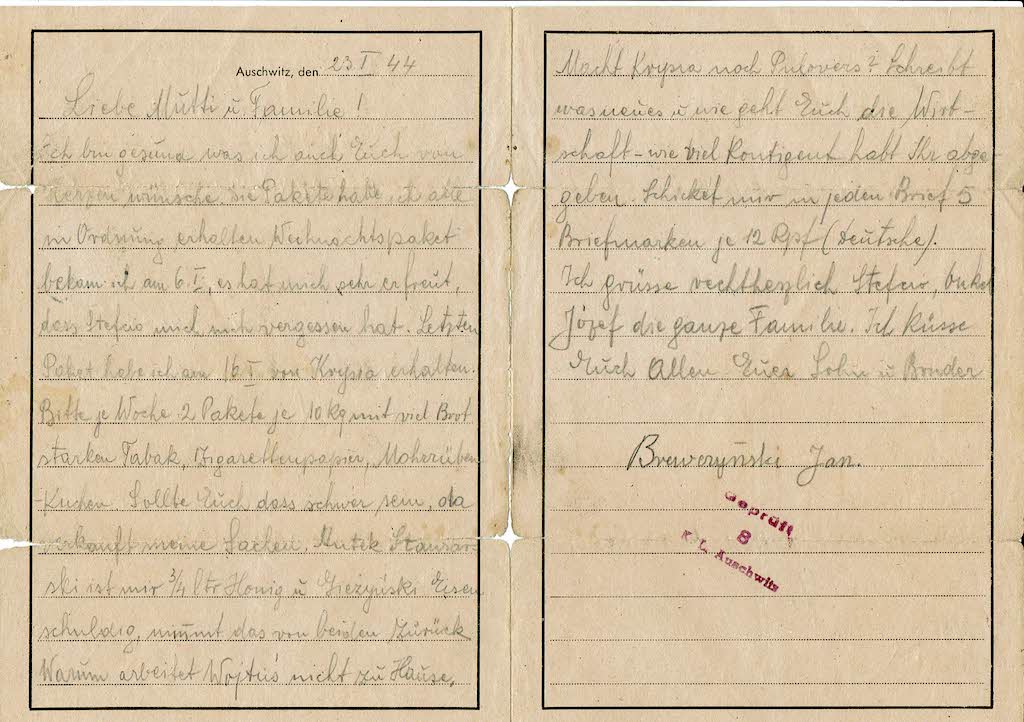 Auschwitz, den 23 I 44
Liebe Mutti u. Familie!
Ich bin gesund was ich auch Euch von
Herzen wünsche. Die Pakete habe ich alle
in Ordnung erhalten Weihnachtspaket
bekam ich am 6.I., es hat mich sehr erfreut,
dass Stefcio mich nich vergessen hat. Letzten
Paket habe ich am 16.I von Krysia erhalten.
Bitte je Woche 2 Pakete je 10 kg mit viel Brot
starken Tabak, Zigarettenpapier, Mohrrüben
Kuchen. Sollte Euch dass schwer sein, da
verkauft meine Sachen. Antek
ski ist mir ¾ ltr Honig u Gieżyński Eisen
schuldig, nimmt das von beiden zurück
Warum arbeitet Wojtuś nicht zu Hause,
Macht Krysia noch Pulovers? Schreibt
was neues u wie geht Euch die Wirt-
schaft - wie viel Kontigent habt Ihr abge-
geben. Schicket mir in jeden Brief 5
Briefmarken je 12 Rpf (deutsche).
Ich grüsse rechtherzlich Stefcio, Onkel
Józef die ganze Familie. Ich küsse
Euch Allen Euer Sohn u Bruder
Jan.
Geprüft
8
K. L. Auschwitz